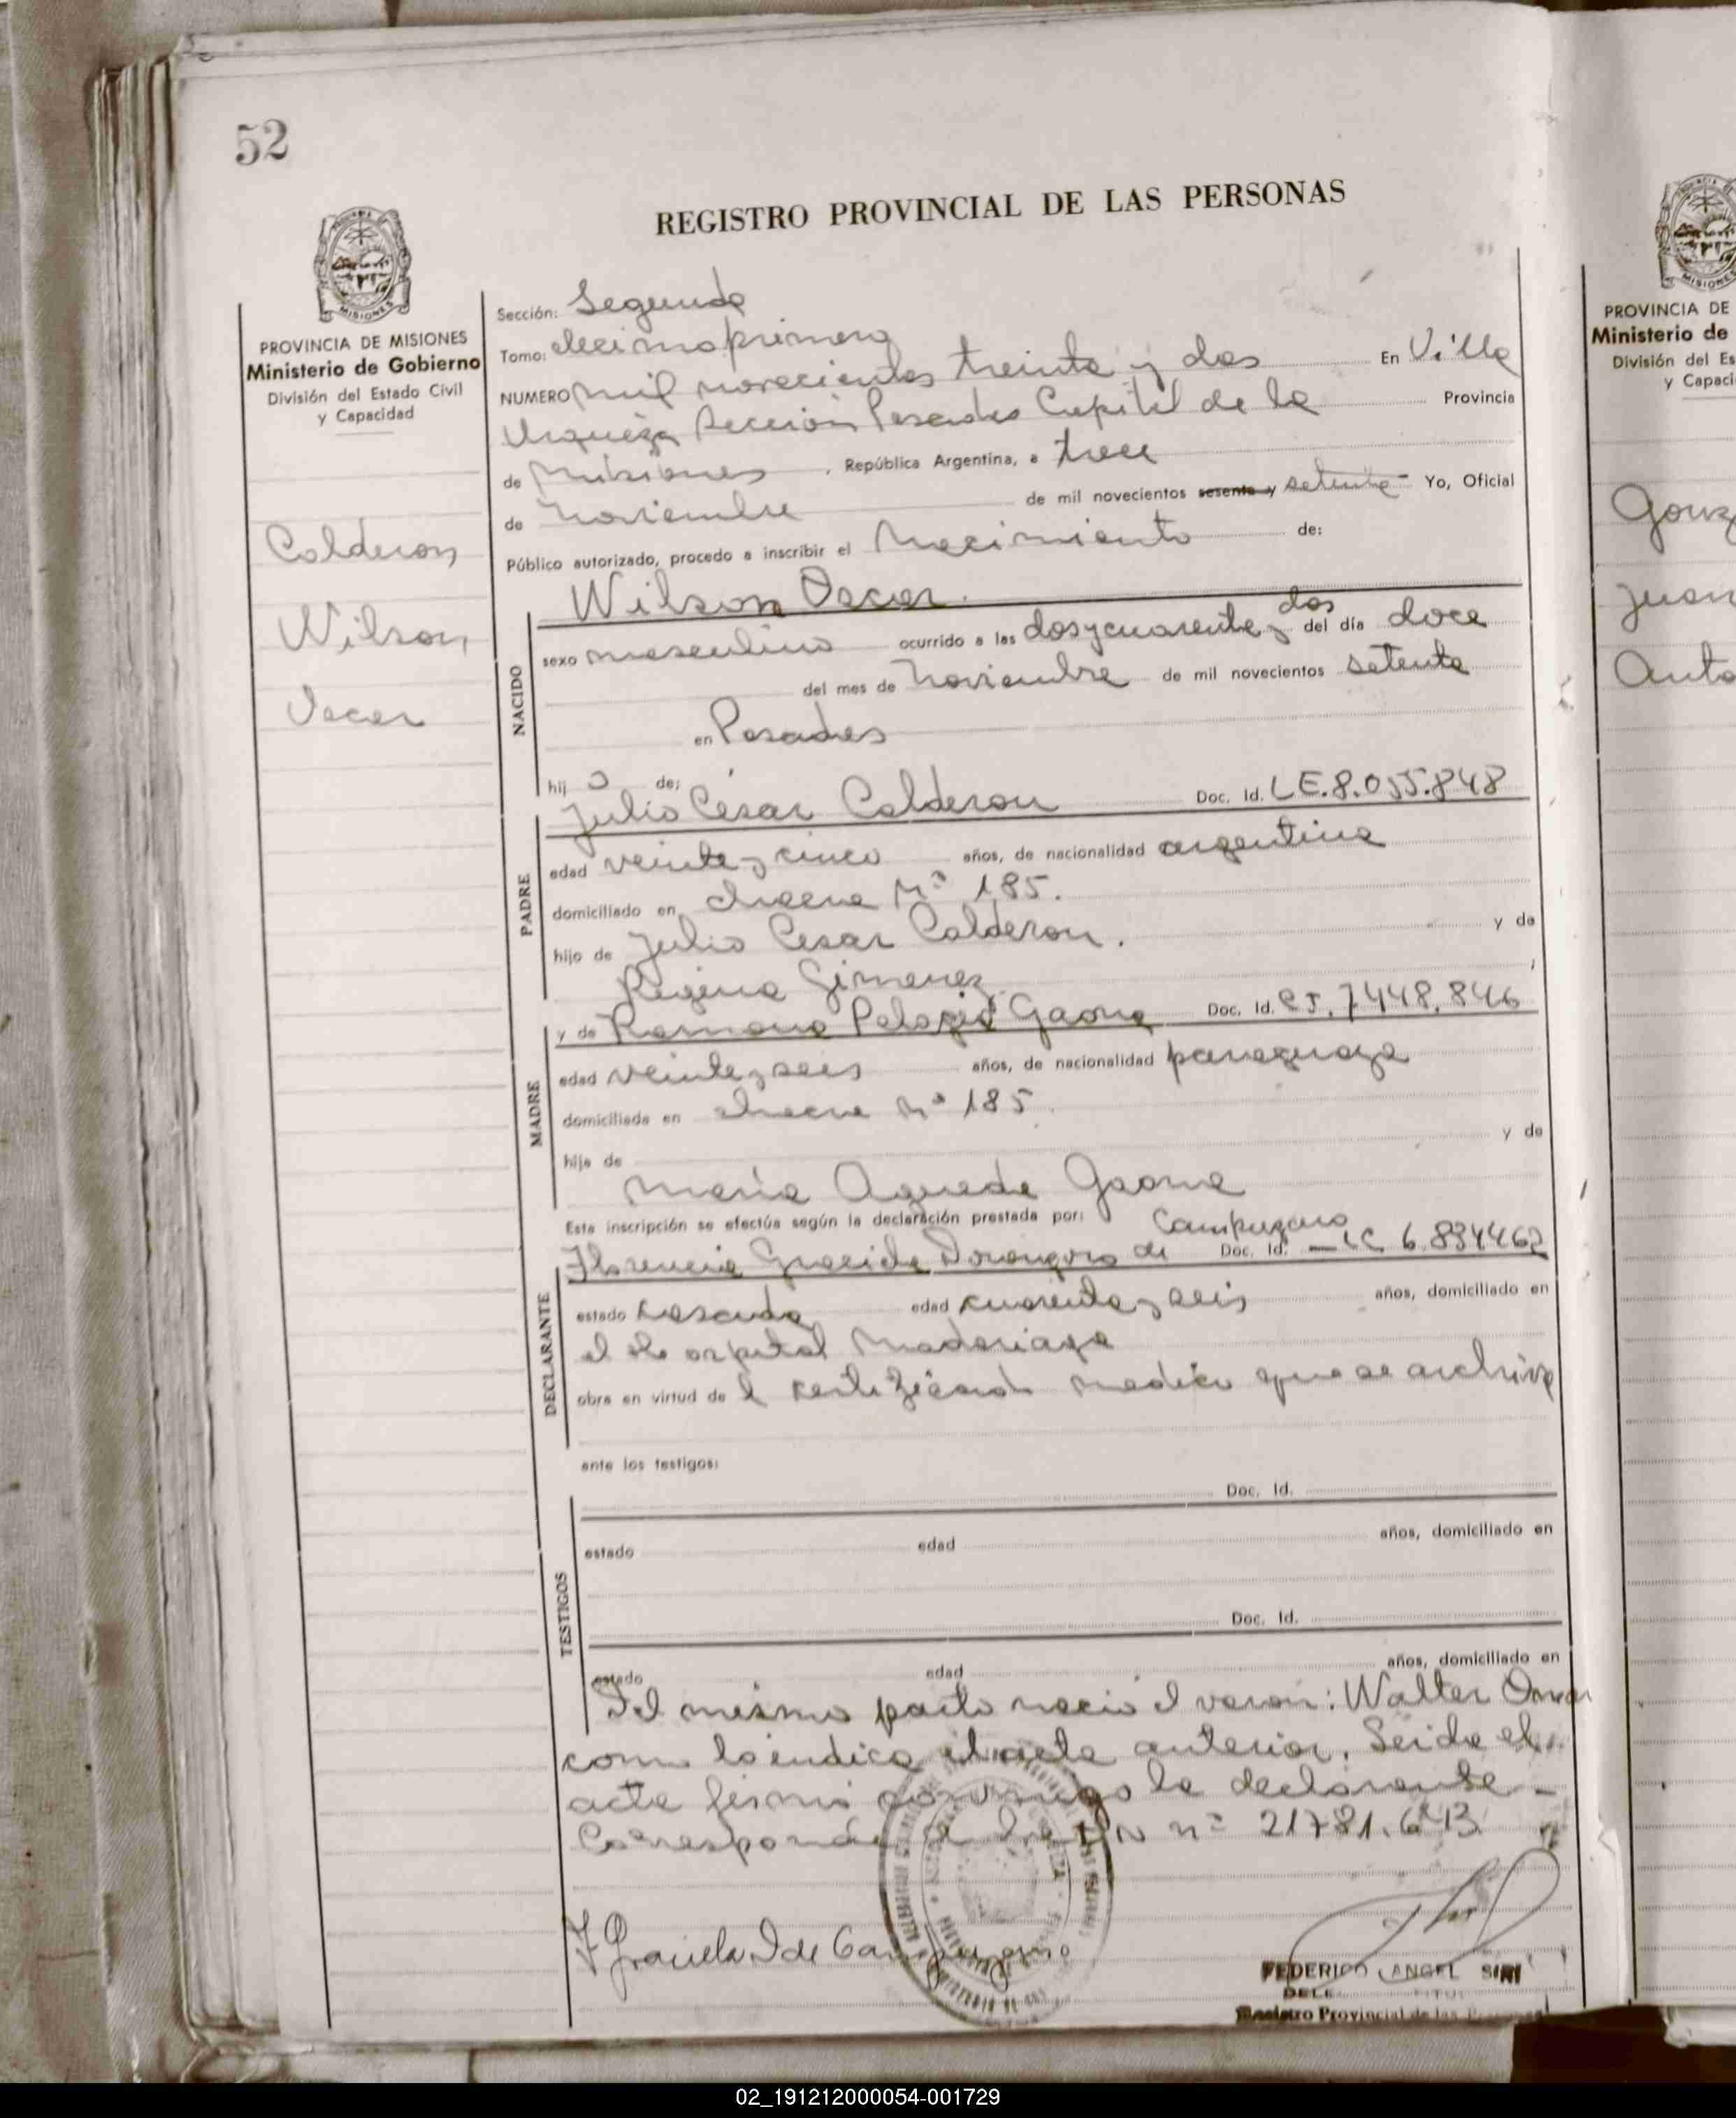 52
REGISTRO PROVINCIAL DE LAS PERSONAS
MISIONES
PROVINCIA DE MISIONES
Ministerio de Gobierno
División del Estado Civil
y Capacidad
Calderon
Wilson
Oscar
Sección: Segunda
Tomo: decimo primero
NUMERO mil novecientos treinta y dos En Villa
Urquiza Sección Posadas Capital de la Provincia
de Misiones , República Argentina, a trece
de noviembre de mil novecientos sesenta y setenta Yo, Oficial
Público autorizado, procedo a inscribir el Nacimiento de:
Wilson Oscar.
NACIDO
sexo masculino ocurrido a las dos y cuarenta y dos del día doce
del mes de noviembre de mil novecientos setenta
en Posadas
hij o de:
Julio César Calderon Doc. Id. LE.8.055.848
PADRE
edad veinte y cinco años, de nacionalidad argentina
domiciliado en chacra Nº 185.
hijo de Julio Cesar Calderon. y de
Regina Gimenez
y de Ramona Pelagia Gaona Doc. Id. CI. 7448.846
MADRE
edad veinte y seis años, de nacionalidad paraguaya
domiciliada en chacra nº 185.
hija de y de
María Agueda Gaona
Esta inscripción se efectúa según la declaración prestada por: Campuzano
Florencia Graciela de Doc. Id. LC 6.834462
DECLARANTE
estado casada edad cuarenta y seis años, domiciliado en
el hospital Madariaga
obra en virtud de l certificado medico que se archiva
ante los testigos:
Doc. Id.
TESTIGOS
estado edad años, domiciliado en
Doc. Id.
estado edad años, domiciliado en
Del mismo parto nació el varon: Walter Omar
como lo indica el acta anterior. Leida el
acta firmó conmigo la declarante -
Corresponde nº 21781.643
F Graciela D de Campuzano
FEDERICO ANGEL SIRI
Registro Provincial de las Personas
PROVINCIA DE
Ministerio de
División del Es
y Capaci
Gonz
Juan
Anto
02_191212000054-001729